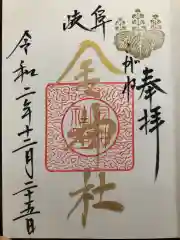 奉拝
こがね
岐阜
金神社
令和二年十二月二五日